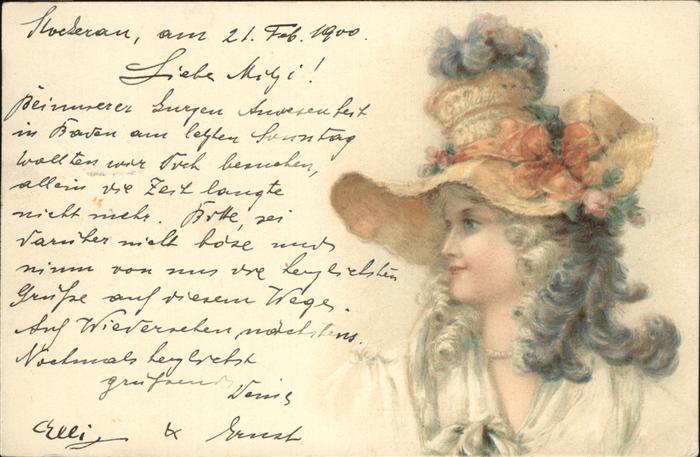 Stockerau, am 21. Feb. 1900.
Liebe Mitzi!
Bei unserer kurzen Anwesenheit
in Baden am letzten Sonntag
wollten wir Dich besuchen,
allein die Zeit langte
nicht mehr. Bitte, sei
darüber nicht böse und
nimm von uns die herzlichsten
Grüße auf diesem Wege.
Auf Wiedersehen nächstens.
Nochmals herzlichst
grüßend
Elli & Ernst